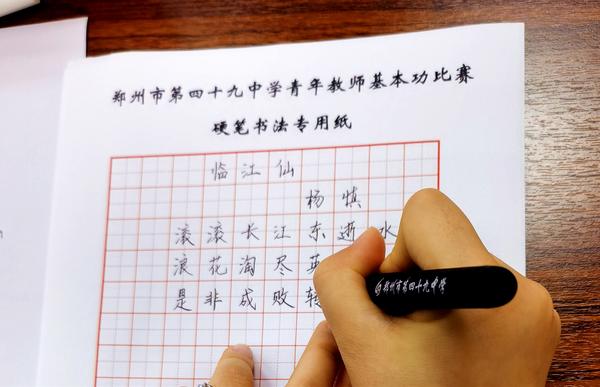 郑州市第四十九中学青年教师基本功比赛
硬笔书法专用纸
临江仙
杨慎
滚滚长江东逝水
浪花淘尽英
是非成败转
郑州市第四十九中学